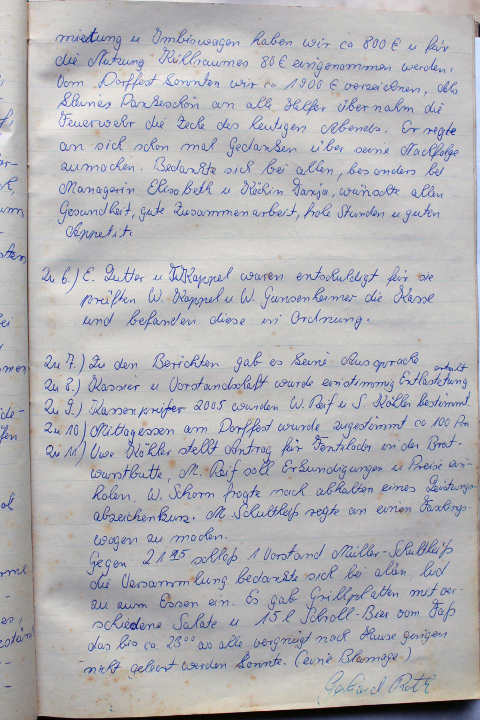 mietung u Imbiswagen haben wir ca 800 € u für
die Nutzung Kühlraumes 80 € eingenommen werden.
Vom Dorffest konnten wir ca 1900 € verzeichnen. Als
kleines Dankeschön an alle Helfer übernahm die
Feuerwehr die Zeche des heutigen Abends. Er regte
an sich schon mal Gedanken über seine Nachfolge
zumachen. Bedankte sich bei allen, besonders bei
Managerin Elisabeth u Köchin Tanja, wünschte allen
Gesundheit, gute Zusammenarbeit, frohe Stunden u guten
Appetit.
Zu 6.) E. Zutter u Kappel waren entschuldigt für sie
prüften W. Kappel u W. Gunsenheimer die Kasse
und befanden diese in Ordnung.
Zu 7.) Zu den Berichten gab es keine Aussprache
Zu 8.) Kassier u Vorstandschaft wurde einstimmig Entlastetung erteilt
Zu 9.) Kassenprüfer 2005 wurden W. Reif u S. Köhler bestimmt.
Zu 10) Mittagessen am Dorffest wurde zugestimmt ca 100 Prn
Zu 11.) Uwe Köhler stellt Antrag für Ventilator in der Brat-
wurstbutte, M. Reif soll Erkundigungen u Preise ein-
holen. W. Schorn fragte nach abhalten eines Leistungs-
abzeichenkurs. M. Schultheiß regte an einen Faschings-
wagen zu machen.
Gegen 21 schloß 1 Vorstand Müller-Schultheiß
die Versammlung bedankte sich bei allen, lud
zu zum Essen ein. Es gab Grillplatten mit ver-
schiedene Salate u 15 l Schroll-Bier vom Faß
das bis ca 23°° als alle vergnügt nach Hause gingen
nicht geleert werden konnte. (eine Blamage)